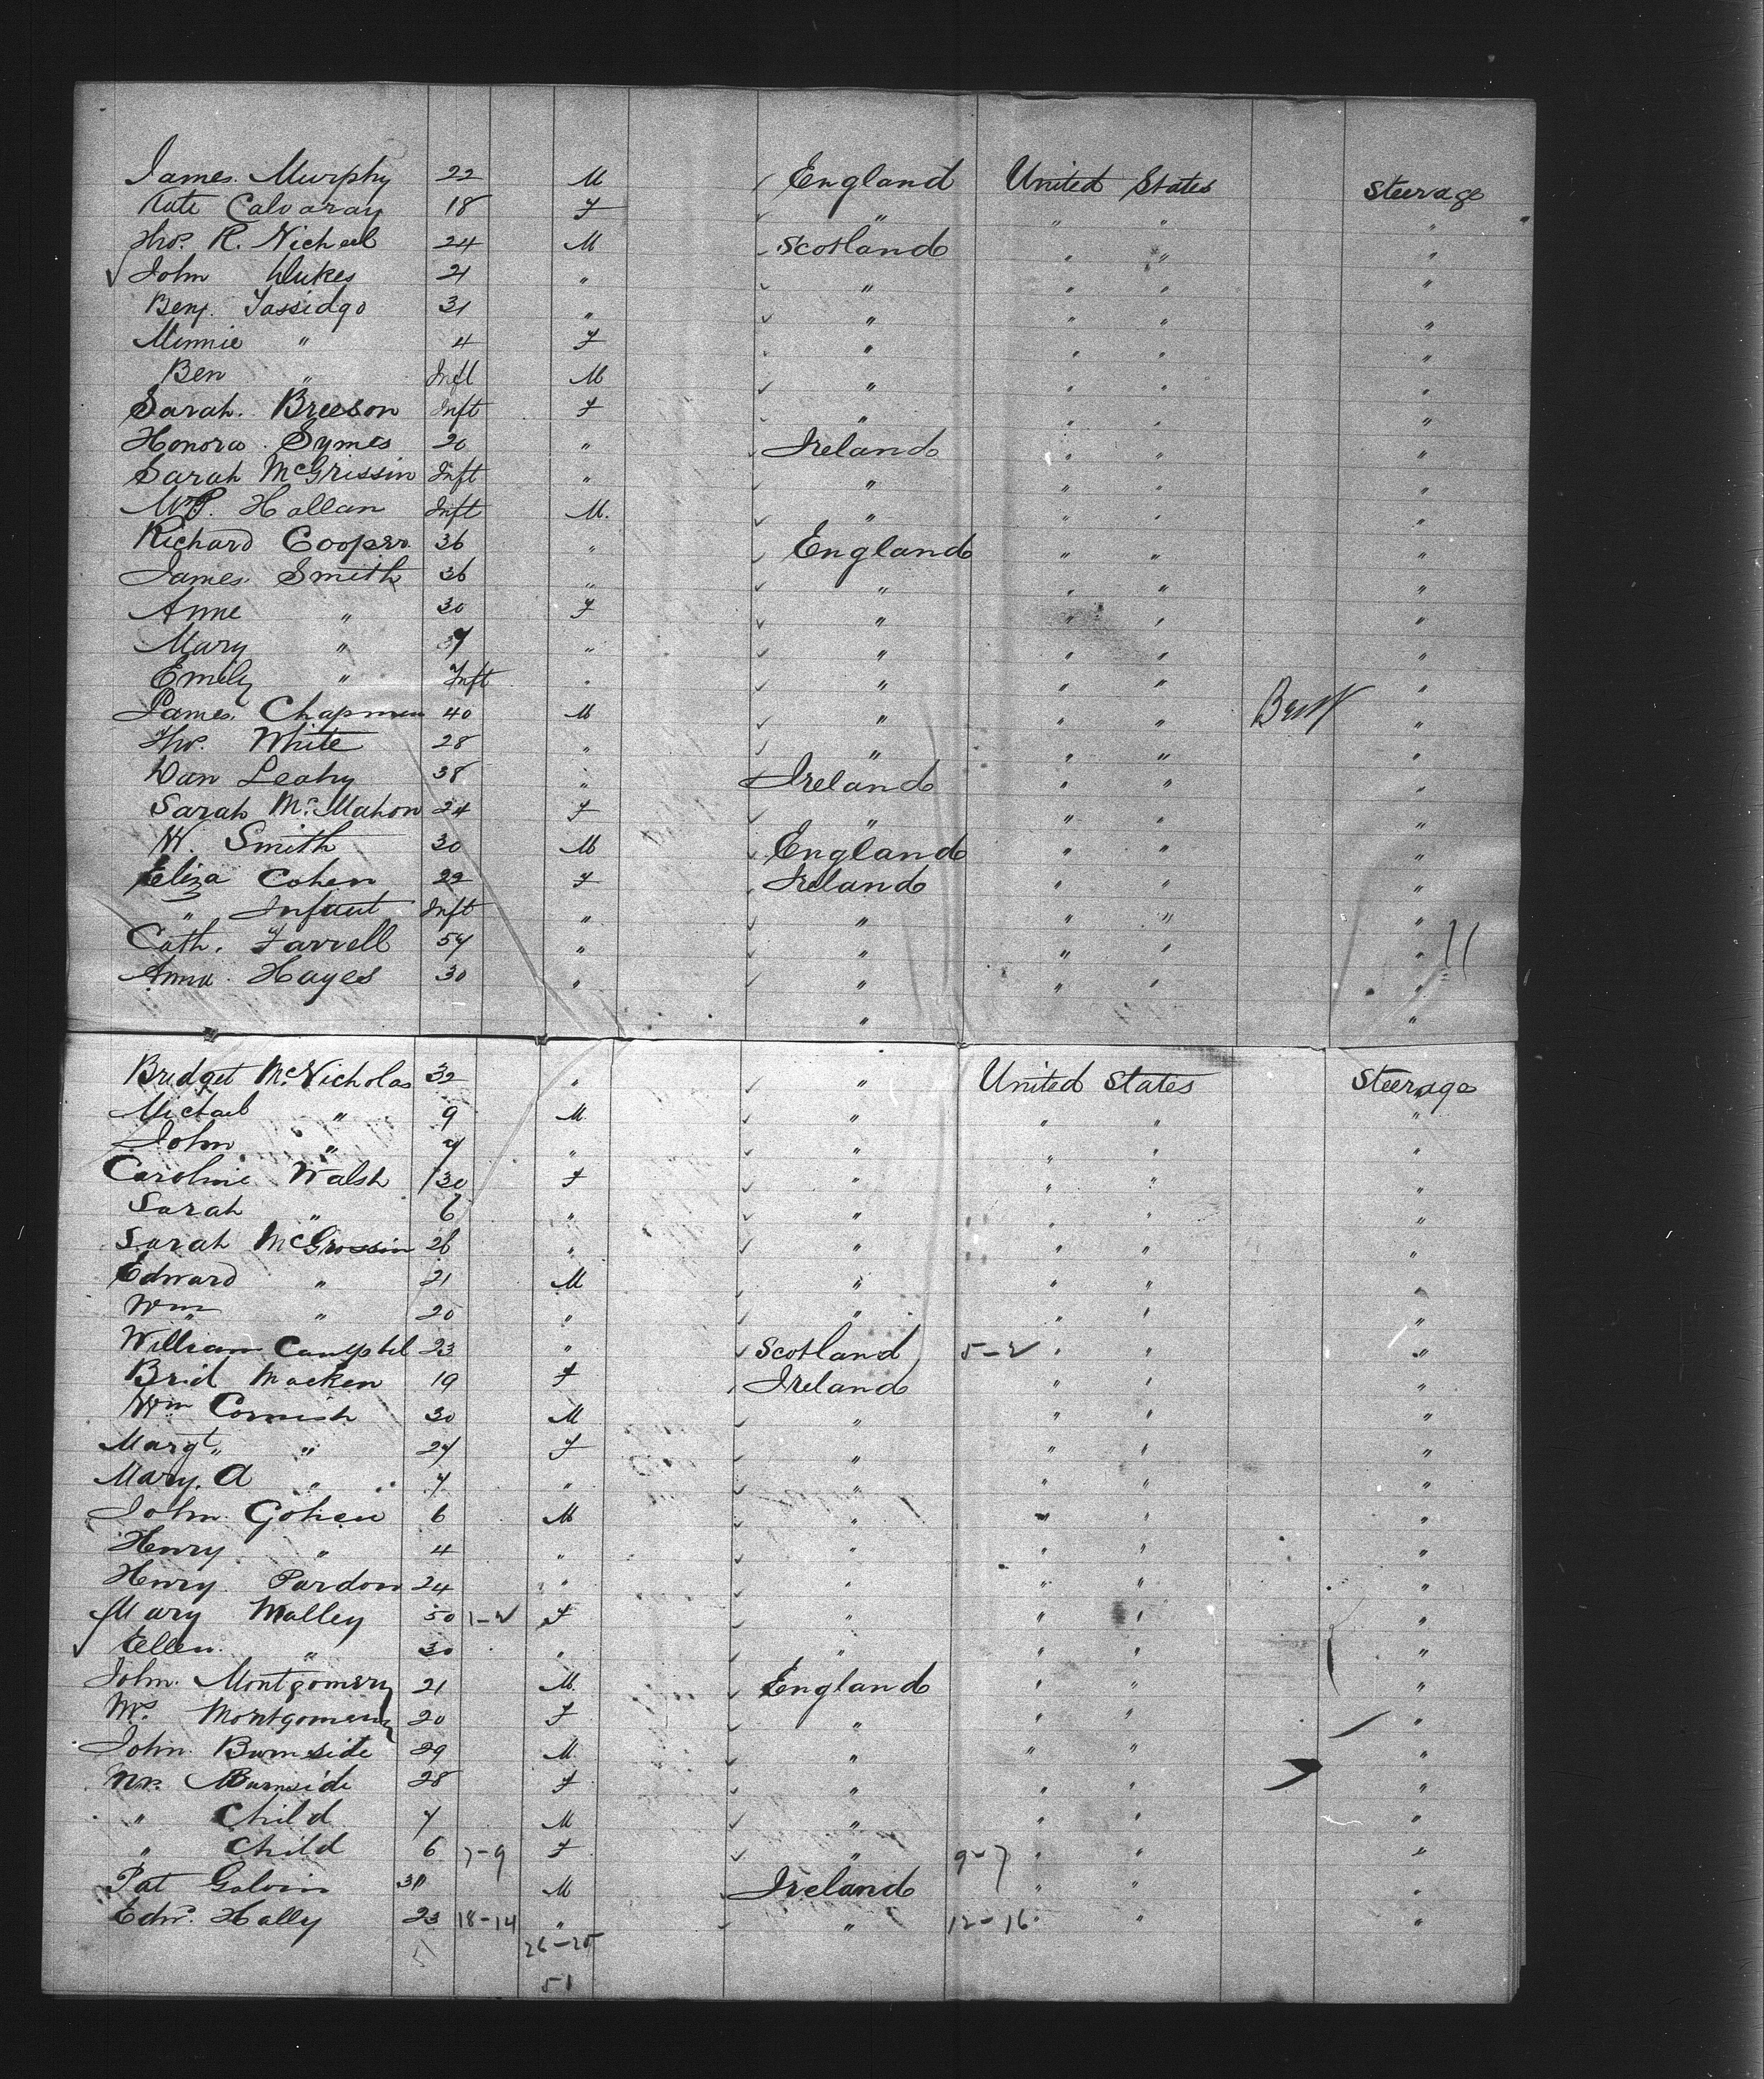 James Murphy 22 M England United States Steerage
Kate Calvaray 18 F " " " "
Thos. R. Nicheel 24 M Scotland " " "
John Dukes 21 " " " " "
Benj. Tassidgo 31 " " " " "
Minnie " 4 F " " " "
Ben " Inft M " " " "
Sarah Breeson Inft F " " " "
Honora Symes 20 " Ireland " " "
Sarah McGrissin Inft " " " " "
Hallan Inft M. " " " "
Richard Cooper 36 " England " " "
James Smith 36 " " " " "
Anne " 30 F " " " "
Mary " " " " " "
Emily " Inft " " " " "
James Chapman 40 M " " " "
Thos. White 28 " " " " "
Dan Leahy 38 " Ireland " " "
Sarah McMahon 24 F " " " "
W. Smith 30 M England " " "
Eliza Cohen 22 F Ireland " " "
" Infant Inft " " " " "
Cath. Farrell 54 " " " " " 11
Anna Hayes 30 " " " " "
" "
Bridget McNicholas 32 " " United States Steerage
Michael " 9 M " " " "
John " 7 " " " " "
Caroline Walsh 30 F " " " "
Sarah " 6 " " " " "
Sarah McGrossin 26 " " " " "
Edward " 21 M " " " "
Wm " 20 " " " " "
William Campbel 23 " Scotland 5-2 " " "
Brid Macken 19 F Ireland " " "
Wm Cornish 30 M " " " "
Margt " 27 F " " " "
Mary. A " 7 " " " " "
John Gohen 6 M " " " "
Henry " 4 " " " " "
Henry Pardon 24 " " " " "
Mary Malley 50 1-2 F " " " "
Ellen " 30 " " " " "
John Montgomery 21 M England " " "
Mrs. Montgomery 20 F " " " "
John Burnside 29 M " " " "
Mrs. Burnside 28 F " " " "
" Child 7 M " " " "
" Child 6 7-9 F " 9-7 " " "
Pat Galvin 31 M Ireland " " "
Edw. Hally 23 18-14 " " 12-16 " " "
26-25
51